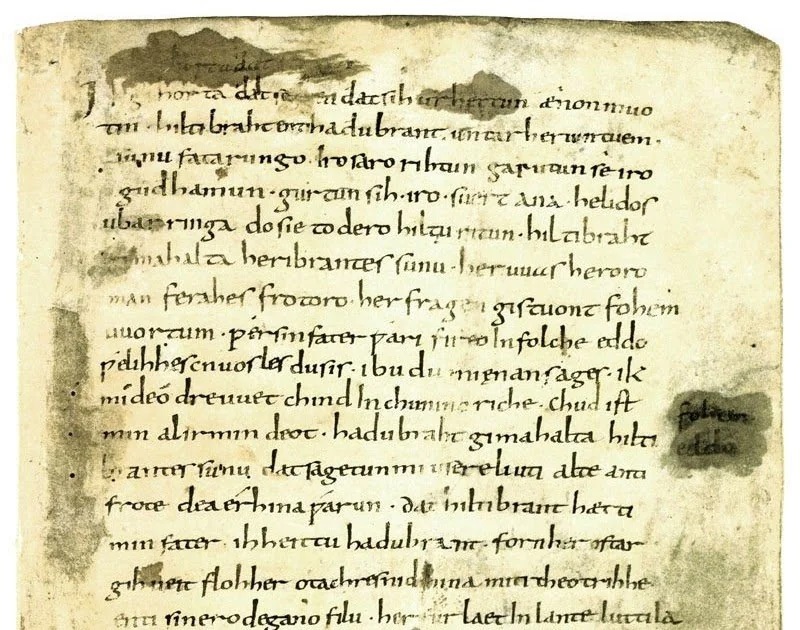 gihorta dat seggen dat sih urhettun ænon muo
tin · hiltibraht enti hadubrant · untar heriuntuem ·
sunu fatarungo · iro saro rihtun garutun se iro
gudhamun · gurtun sih · iro · suert ana · helidos
ubar ringa do sie to dero hiltu ritun · hiltibraht
gimahalta heribrantes sunu · her uuas heroro
man ferahes frotoro · her fragen gistuont fohem
uuortum · ƿer sin fater ƿari fireo In folche eddo
ƿelihhes cnuosles du sis · ibu du mi enan sages · ik
mideo dre uuet chind In chuninc riche · chud ist
min al irmin deot · hadubraht gimahalta hilti
brantes sunu dat sagetun mi usere liuti alte anti
frote dea érhina ƿarun · dat hiltibrant hætti
min fater · ih heittu hadubrant · forn her ostar
gihueit floh her otachres nid hina miti theotrihhe
enti sinero degano filu · her fur laet In lante luttila
fohem
eddo